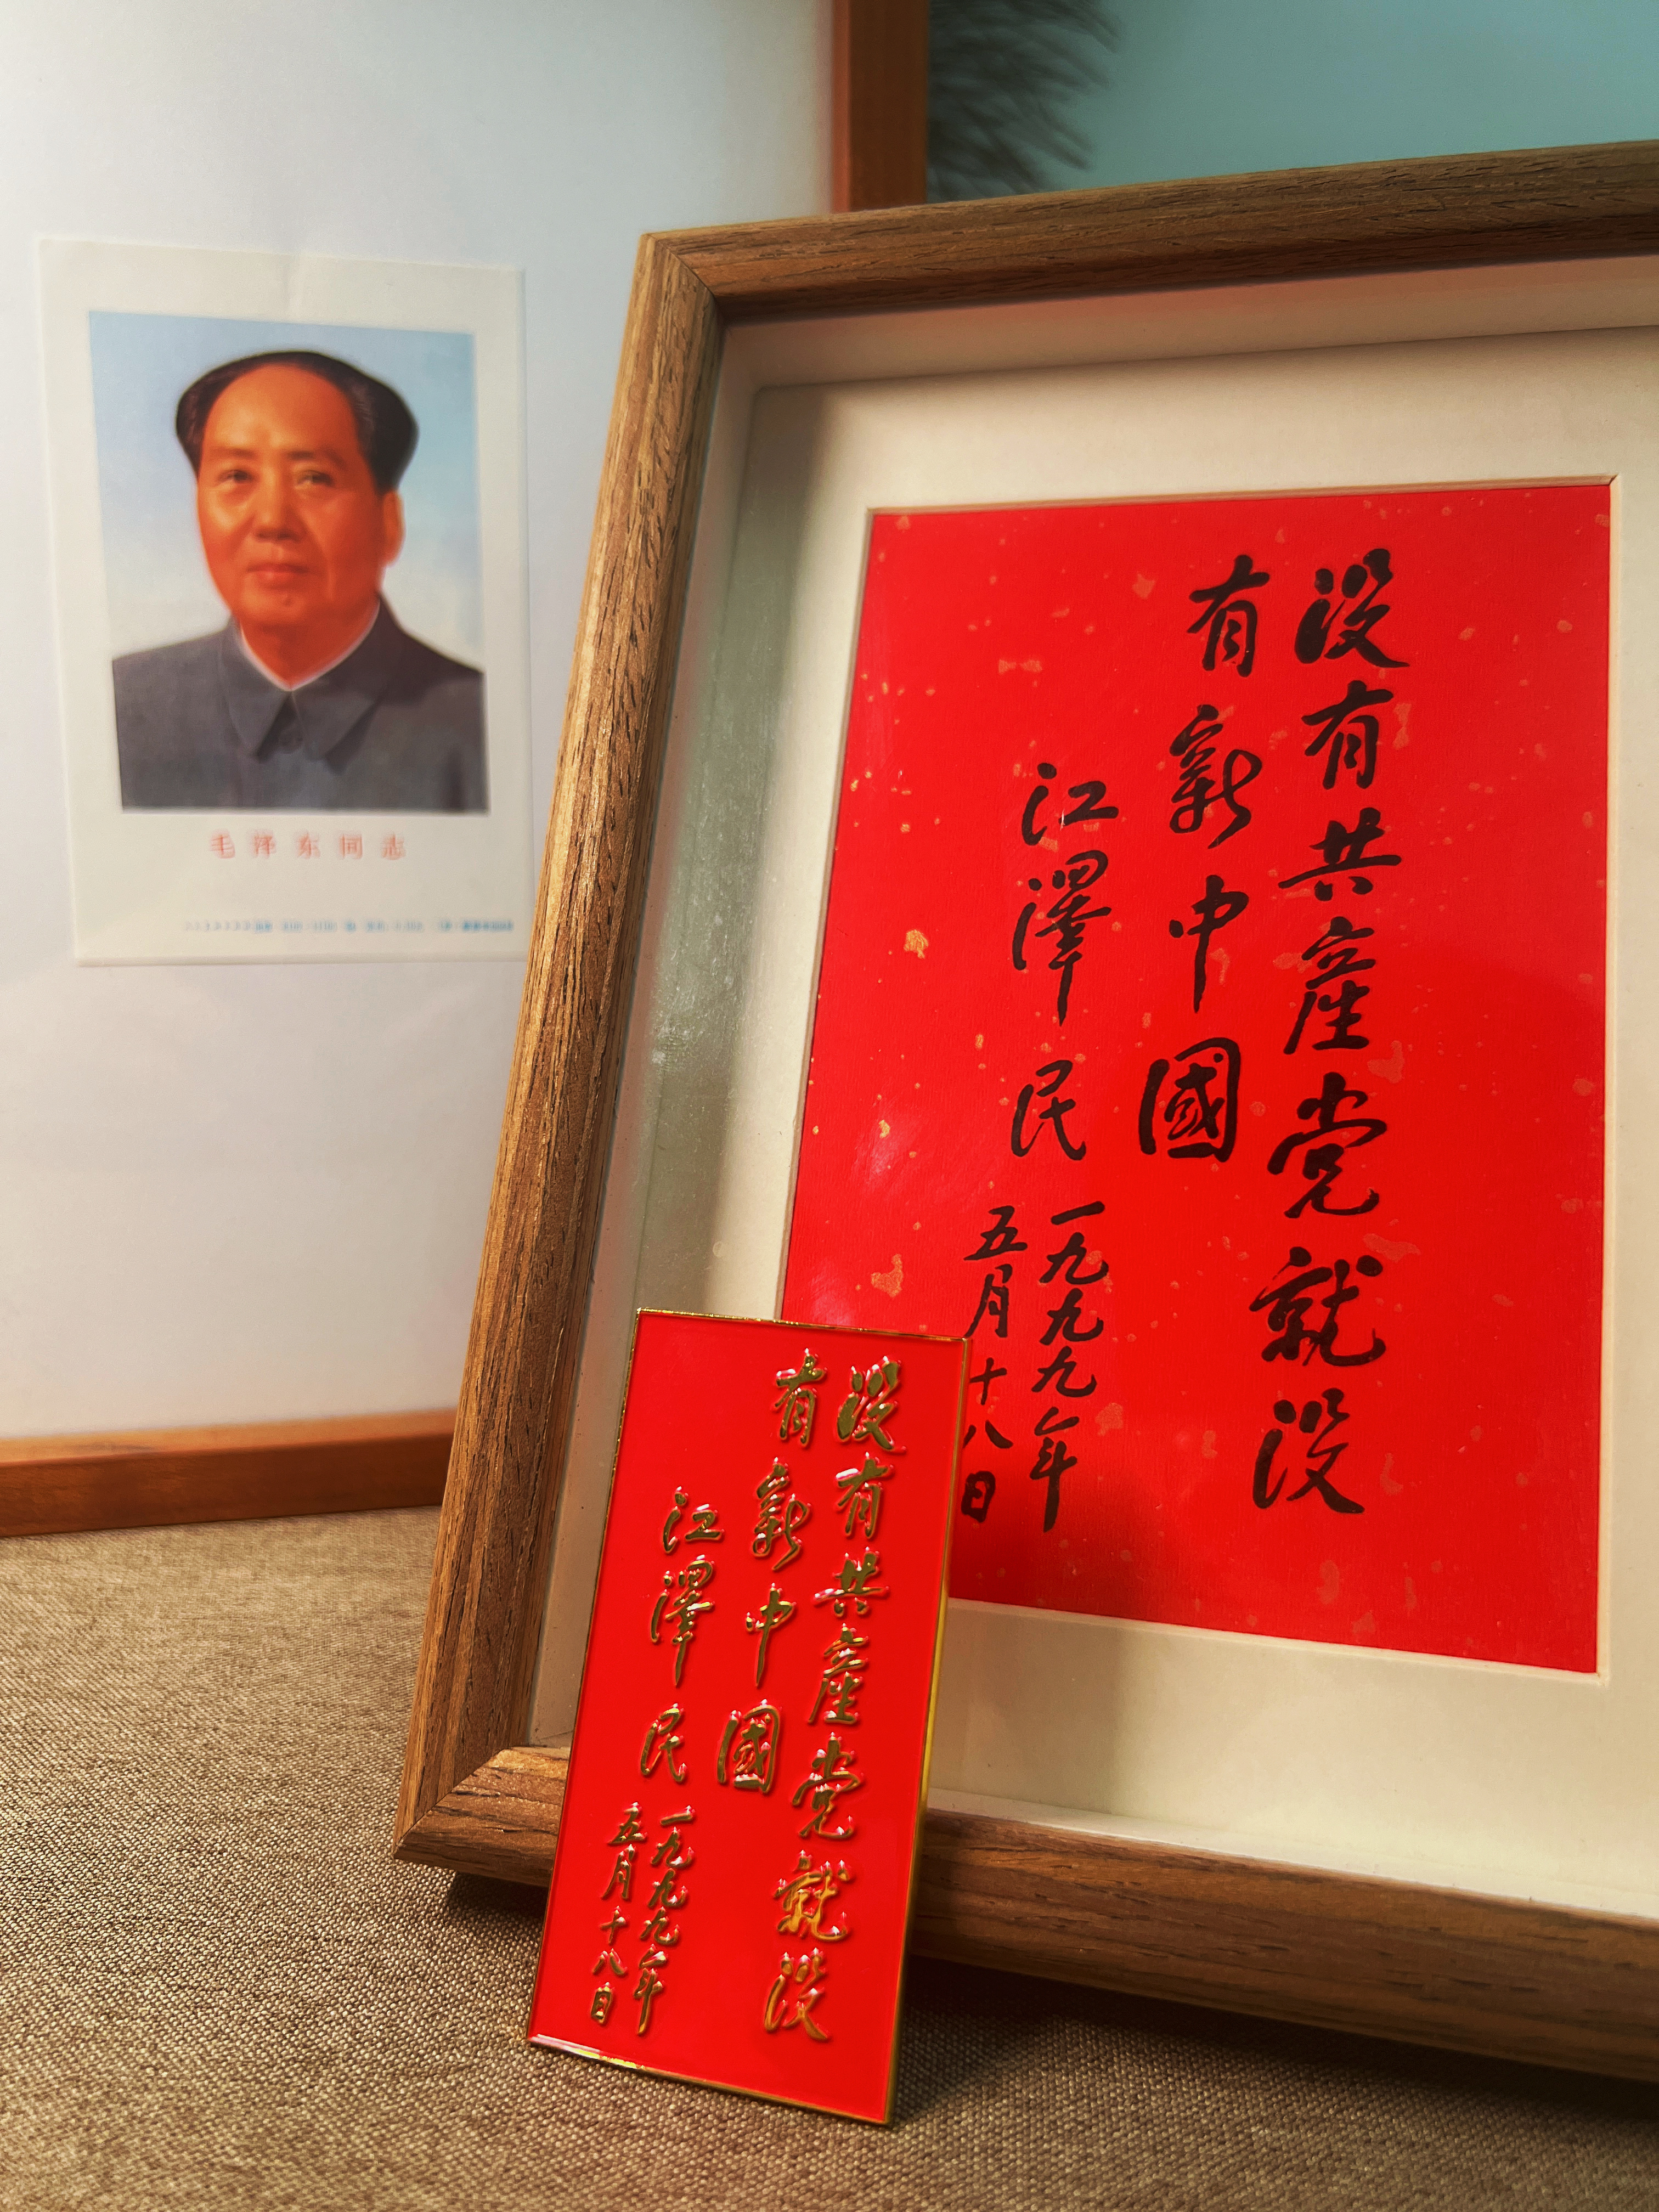 毛泽东同志
没有共產党就没
有新中國
江澤民
一九九九年
五月十八日
没有共產党就没
有新中國
江澤民
一九九九年
五月十八日